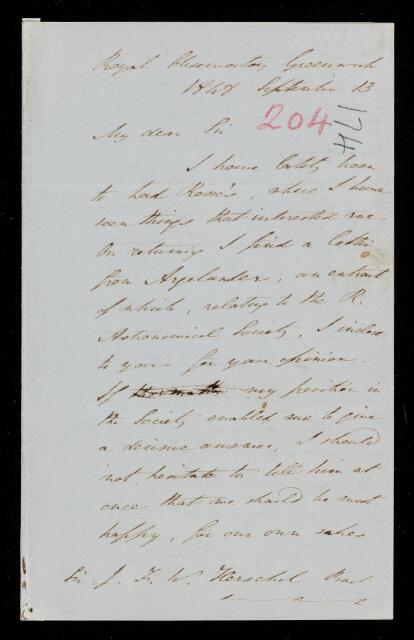 Royal Observatory Greenwich
1848 September 13
204
174
My dear Sir
I have lately been
to Lord Rosse's, where I have
seen things that interested me.
On returning I find a letter
from Argelander, an extract
of which, relating to the R.
Astronomical Society, I inclose
to you for your opinion.
If my position in
the Society enabled me to give
a decisive answer, I should
not hesitate to tell him at
once that we should be most
happy, for our own sakes
Sir J. F. W. Herschel Bart